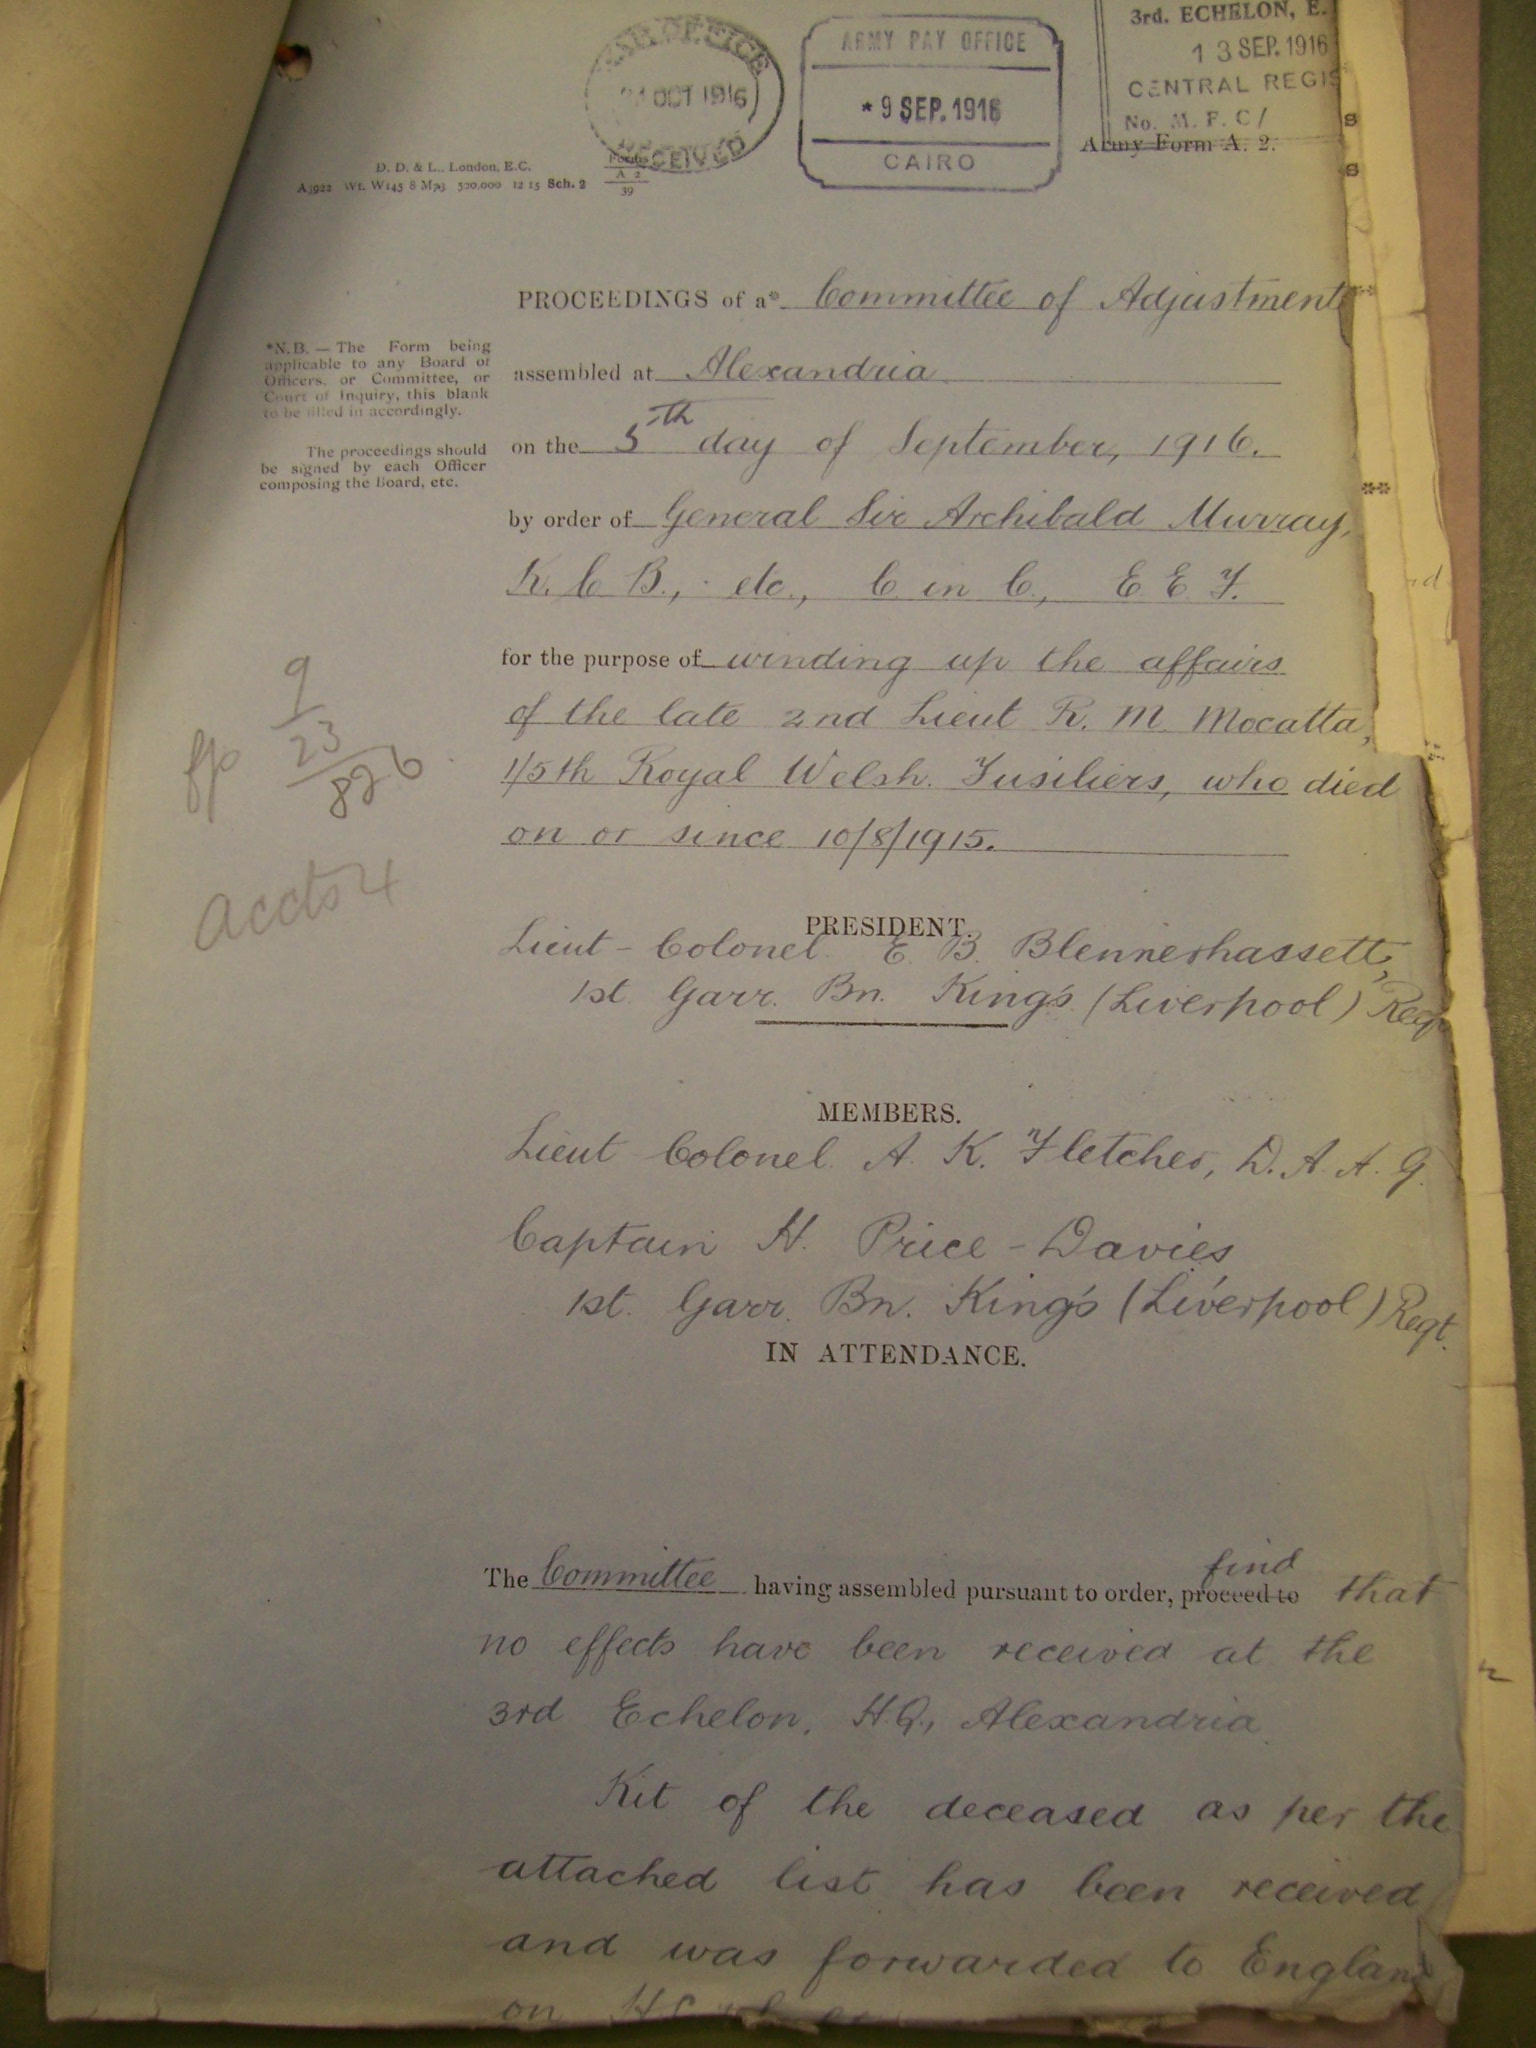 WAR OFFICE
OCT 1916
RECEIVED
ARMY PAY OFFICE
*9 SEP. 1916
CAIRO
3rd. ECHELON, E.
13 SEP. 1916
CENTRAL REGIS
No. M. F. C/
Army Form A. 2.
D. D. & L., London, E.C.
A3922 Wt. W145 8 M793 520,000 12 15 Sch. 2
Forms
A 2
39
PROCEEDINGS of a* Committee of Adjustment
*N.B. — The Form being
applicable to any Board of
Officers, or Committee, or
Court of Inquiry, this blank
to be filled in accordingly.
The proceedings should
be signed by each Officer
composing the Board, etc.
assembled at Alexandria
on the 5th day of September, 1916.
by order of General Sir Archibald Murray,
K. C B., etc., C in C., E E F.
for the purpose of winding up the affairs
of the late 2nd Lieut R. M Mocatta,
1/5th Royal Welsh. Fusiliers, who died
on or since 10/8/1915.
9
23
826
accts 4
PRESIDENT.
Lieut-Colonel. E. B. Blennerhassett,
1st. Garr. Bn. King's (Liverpool) Reg
MEMBERS.
Lieut Colonel. A. K. Fletcher, D. A. A. G.
Captain H. Price-Davies
1st. Garr. Bn. King's (Liverpool) Regt.
IN ATTENDANCE.
The Committee having assembled pursuant to order, proceed to find that
no effects have been received at the
3rd Echelon, H.Q., Alexandria.
Kit of the deceased as per the
attached list has been received
and was forwarded to England
on